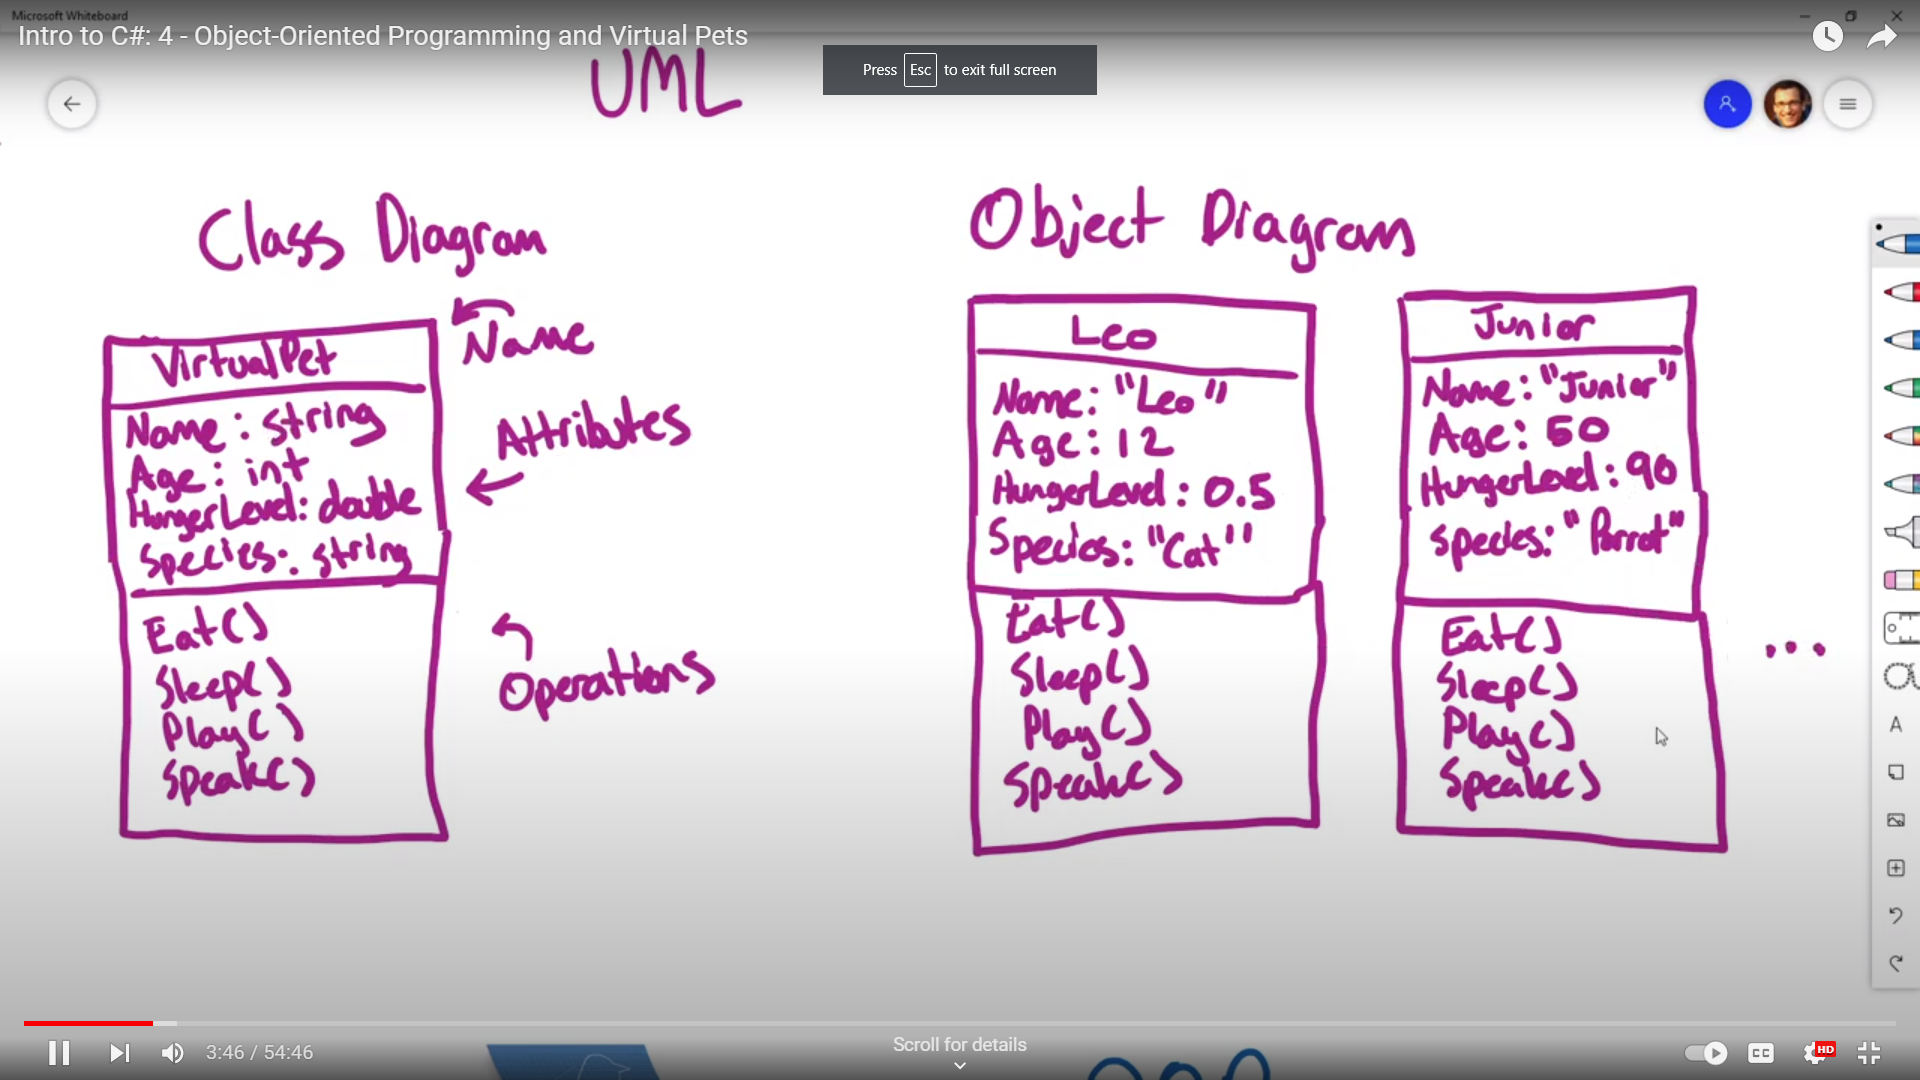 Microsoft Whiteboard
Intro to C#: 4 - Object-Oriented Programming and Virtual Pets
Press Esc to exit full screen
UML
Class Diagram
VirtualPet
Name
Name: string
Age: int
HungerLevel: double
Species: string
Attributes
Eat()
Sleep()
Play()
Speak()
Operations
Object Diagram
Leo
Name: "Leo"
Age: 12
HungerLevel: 0.5
Species: "Cat"
Eat()
Sleep()
Play()
Speak()
Junior
Name: "Junior"
Age: 50
HungerLevel: 90
Species: "Parrot"
Eat()
Sleep()
Play()
Speak()
...
A
3:46 / 54:46
Scroll for details
CC
HD